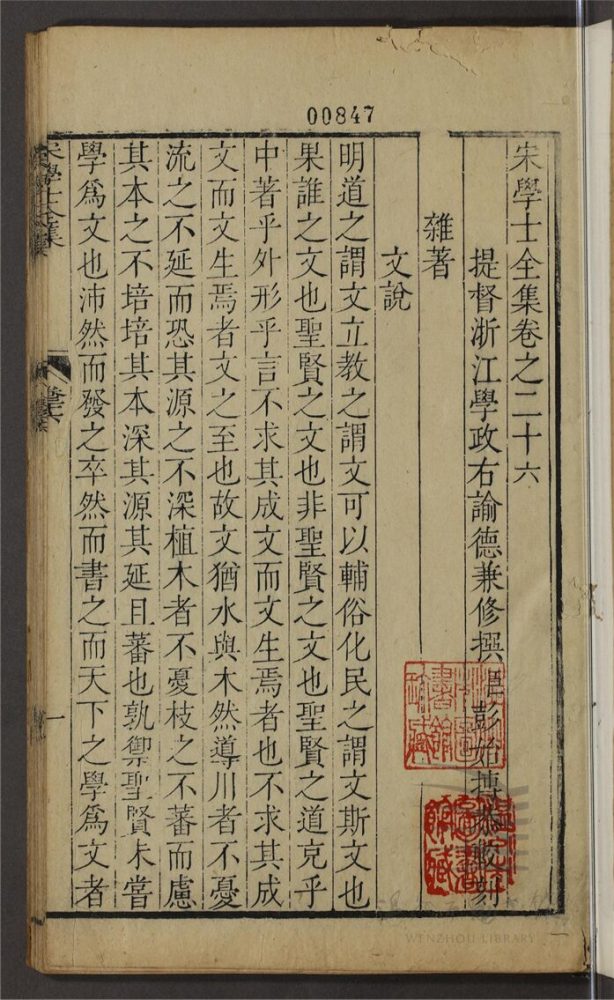 00847
宋學士全集卷之二十六
提督浙江學政右諭德兼修撰彭始摶較刻
雜著
文說
明道之謂文立教之謂文可以輔俗化民之謂文斯文也
果誰之文也聖賢之文也非聖賢之文也聖賢之道克乎
中著乎外形乎言不求其成文而文生焉者也不求其成
文而文生焉者文之至也故文猶水與木然導川者不憂
流之不延而恐其源之不深植木者不憂枝之不蕃而慮
其本之不培培其本深其源其延且蕃也孰禦聖賢未嘗
學爲文也沛然而發之卒然而書之而天下之學爲文者
宋學士全集
一
WENZHOU LIBRARY